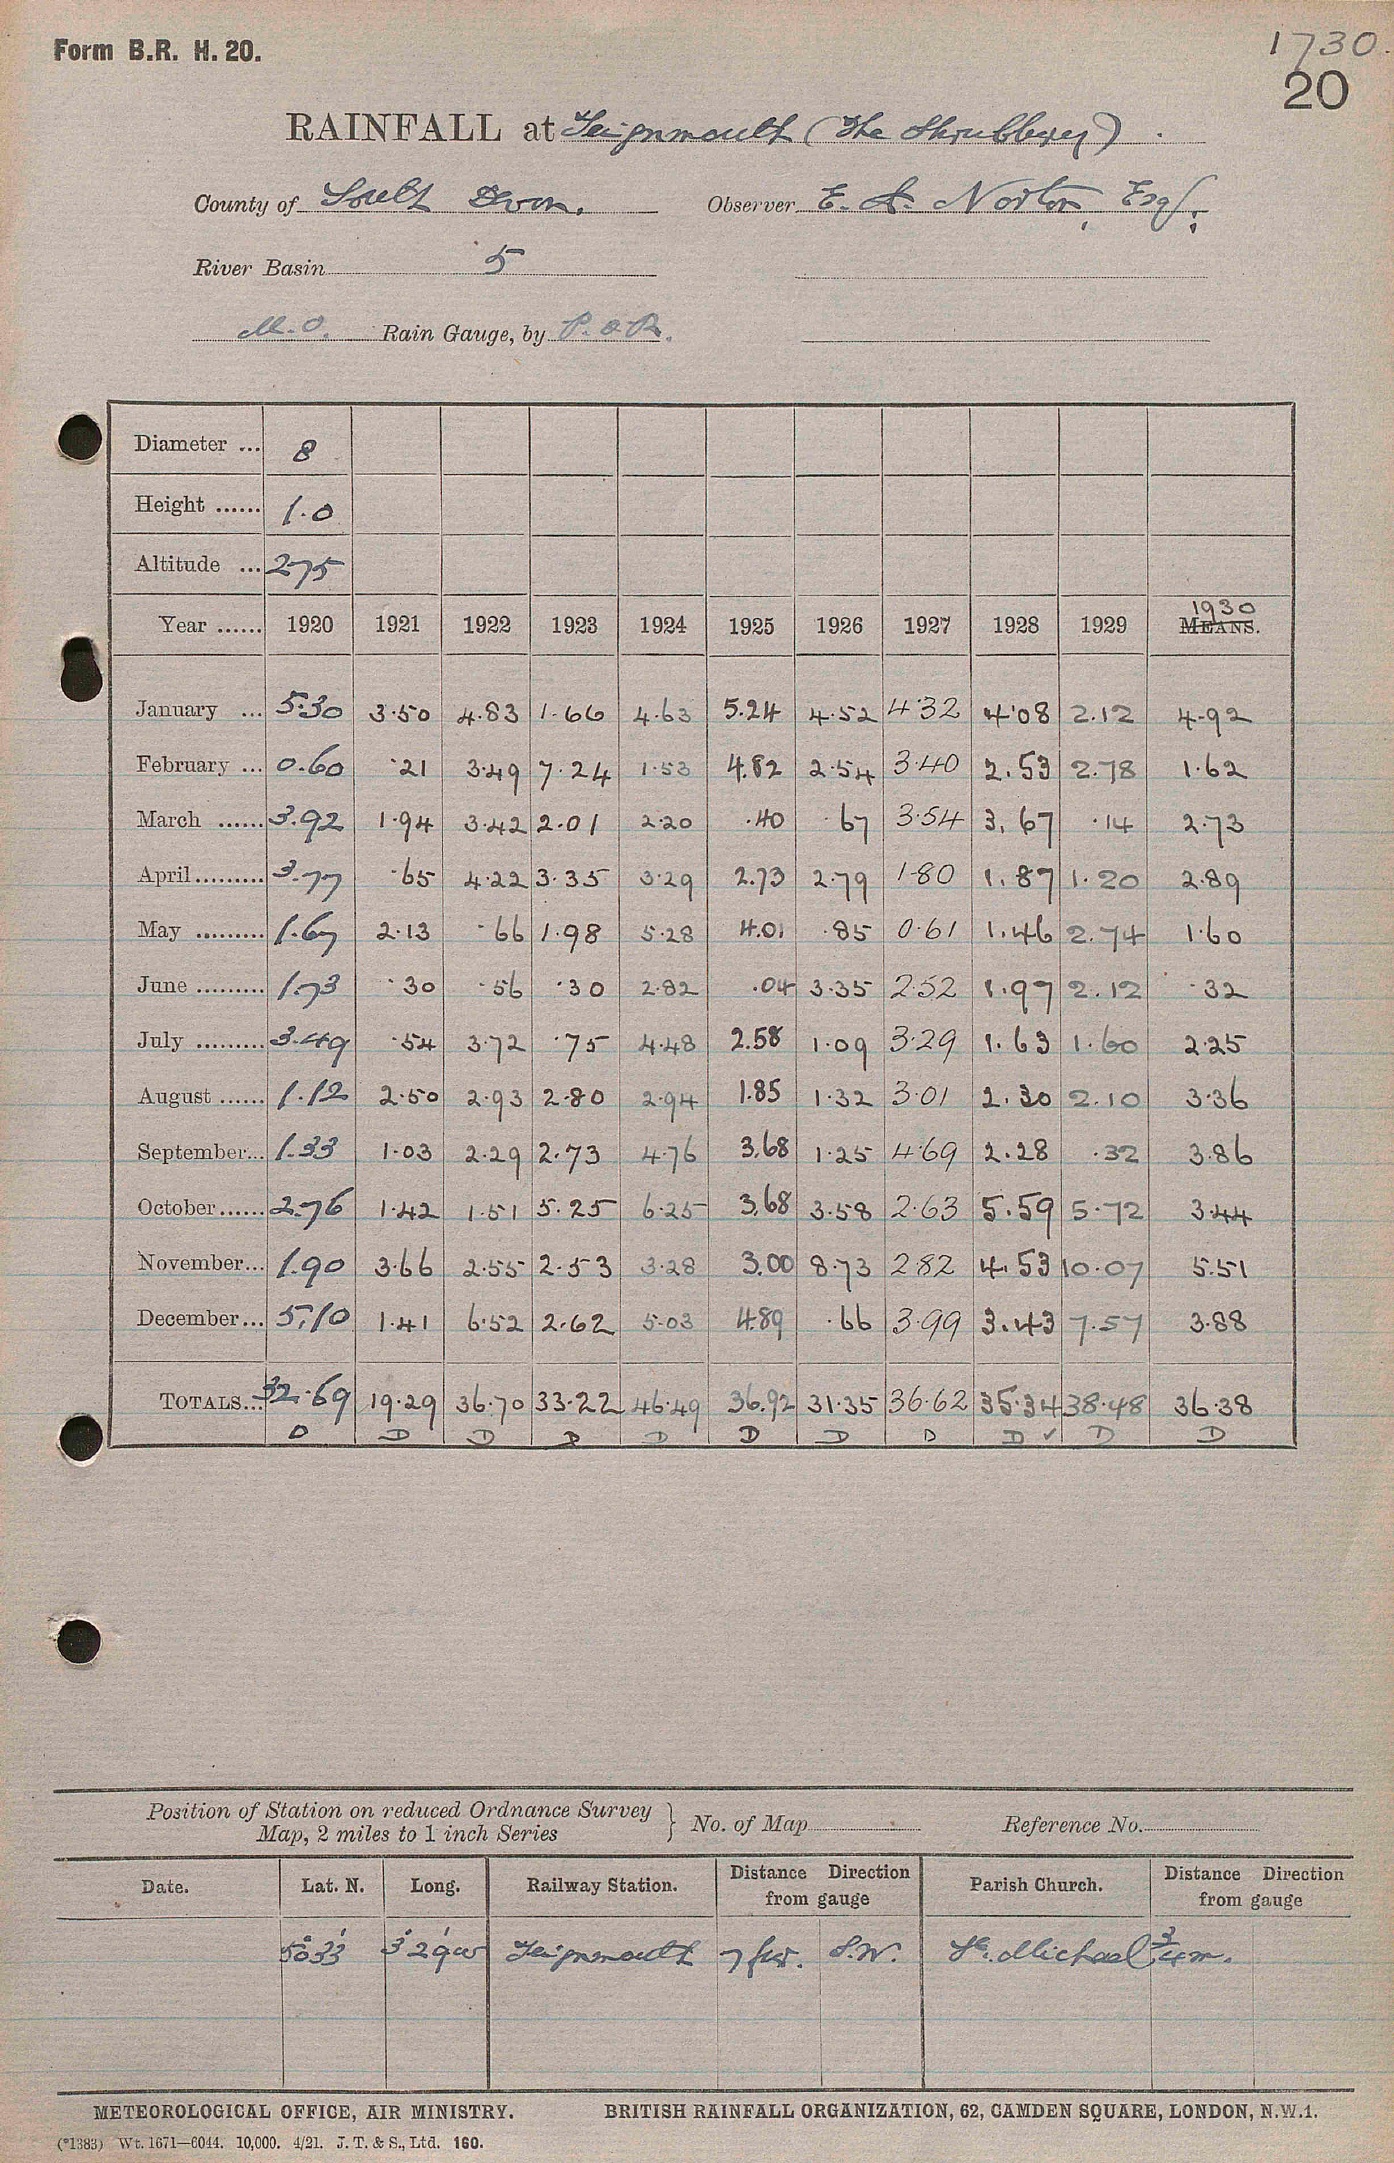 Form B.R. H. 20.
1730.
20
RAINFALL at Teignmouth (The Shrubbery).
County of South Devon. Observer E. A. Norton, Esq.
River Basin 5
M.O. Rain Gauge, by P. & R.
Diameter ... 8
Height ...... 1.0
Altitude ... 275
1930
Year ...... 1920 1921 1922 1923 1924 1925 1926 1927 1928 1929 MEANS.
January ... 5.30 3.50 4.83 1.66 4.63 5.24 4.52 4.32 4.08 2.12 4.92
February ... 0.60 .21 3.49 7.24 1.53 4.82 2.54 3.40 2.53 2.78 1.62
March ...... 3.92 1.94 3.42 2.01 2.20 .40 .67 3.54 3.67 .14 2.73
April ......... 3.77 .65 4.22 3.35 3.29 2.73 2.79 1.80 1.87 1.20 2.89
May ......... 1.67 2.13 .66 1.98 5.28 4.01 .85 0.61 1.46 2.74 1.60
June ......... 1.73 .30 .56 .30 2.82 .04 3.35 2.52 1.97 2.12 .32
July ......... 3.49 .54 3.72 .75 4.48 2.58 1.09 3.29 1.63 1.60 2.25
August ...... 1.12 2.50 2.93 2.80 2.94 1.85 1.32 3.01 2.30 2.10 3.36
September... 1.33 1.03 2.29 2.73 4.76 3.68 1.25 4.69 2.28 .32 3.86
October ...... 2.76 1.42 1.51 5.25 6.25 3.68 3.58 2.63 5.59 5.72 3.44
November... 1.90 3.66 2.55 2.53 3.28 3.00 8.73 2.82 4.53 10.07 5.51
December... 5.10 1.41 6.52 2.62 5.03 4.89 .66 3.99 3.43 7.57 3.88
TOTALS... 32.69 19.29 36.70 33.22 46.49 36.92 31.35 36.62 35.34 38.48 36.38
D D D D D D D D D ✓ D D
Position of Station on reduced Ordnance Survey
Map, 2 miles to 1 inch Series } No. of Map Reference No.
Date. Lat. N. Long. Railway Station. Distance Direction from gauge Parish Church. Distance Direction from gauge
50° 33' 3° 29' W Teignmouth 7 fur. S.W. St. Michael 3/4 m.
METEOROLOGICAL OFFICE, AIR MINISTRY. BRITISH RAINFALL ORGANIZATION, 62, CAMDEN SQUARE, LONDON, N.W.1.
(*1383) Wt. 1671—6044. 10,000. 4/21. J. T. & S., Ltd. 160.